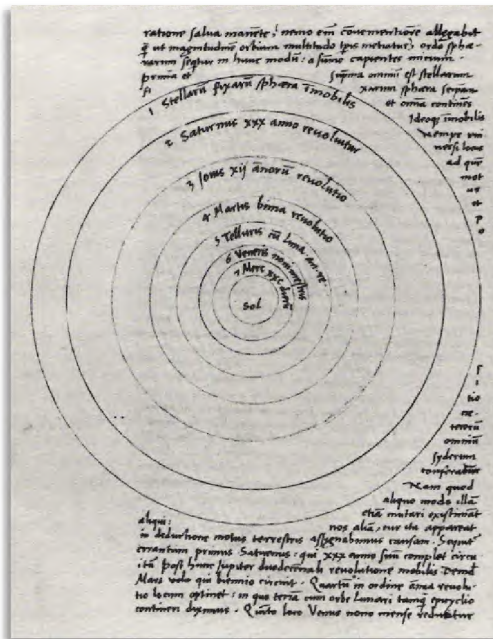 ratione salva manēte, nemo em̄ convenientiorē allegabit
q̄ ut magnitudinē orbium multitudo tp̄is metiatur, ordo sphæ-
rarum sequitur in hunc modū: a sum̄o capientes initium.
prima et suprema omniū est stellarum
fixarum sphæra seipsam
et omnia continēs
Ideoq̄ īmobilis
nempe uni-
versi locus
ad quē
mot
us
et
po
1 Stellarū fixarū sphæra īmobilis
2 Saturnus xxx anno revoluitur
3 Jovis xij annorū revolutio
4 Martis bima revolutio
5 Telluris cū luna an. re.
6 Veneris nonimestris
7 Merc xxc dierū
Sol
si
tio
ce-
terorū
omniū
syderum
conferatur
Nam quod
aliquo modo illā
etiā mutari existimāt
aliqui: nos aliā, cur ita appareat
in deductione motus terrestris assignabimus causam. Sequit̄
errantium primus Saturnus: qui xxx anno suū complet circu
itū post hunc Jupiter duodecennali revolutione mobilis Demū
Mars volo qui biennio circuit. Quartū in ordine annua revolu
tio locum optinet: in quo terrā cum orbe lunari tamq̄ epicyclio
contineri diximus. Quinto loco Venus nono mense reducitur